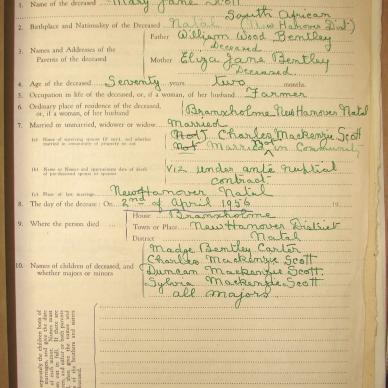 1. Name of the deceased Mary Jane Scott
South African
2. Birthplace and Nationality of the Deceased Natal (New Hanover Dist)
3. Names and Addresses of the Parents of the deceased
Father William Wood Bentley
Deceased
Mother Eliza Jane Bentley
Deceased
4. Age of the deceased Seventy years two months.
5. Occupation in life of the deceased, or, if a woman, of her husband Farmer
6. Ordinary place of residence of the deceased, or, if a woman, of her husband
Branxholme New Hanover Natal
7. Married or unmarried, widower or widow Married
Charles Mackenzie Scott
Not Married in Community
viz under ante nuptial
contract.
(c) Place of last marriage New Hanover Natal
8. The day of the decease : On 2nd of April 1956 19
9. Where the person died
House Branxholme
Town or Place New Hanover District
District Natal
10. Names of children of deceased, and whether majors or minors
Madge Bentley Carter
Charles Mackenzie Scott
Duncan Mackenzie Scott.
Sylvia Mackenzie Scott.
all majors